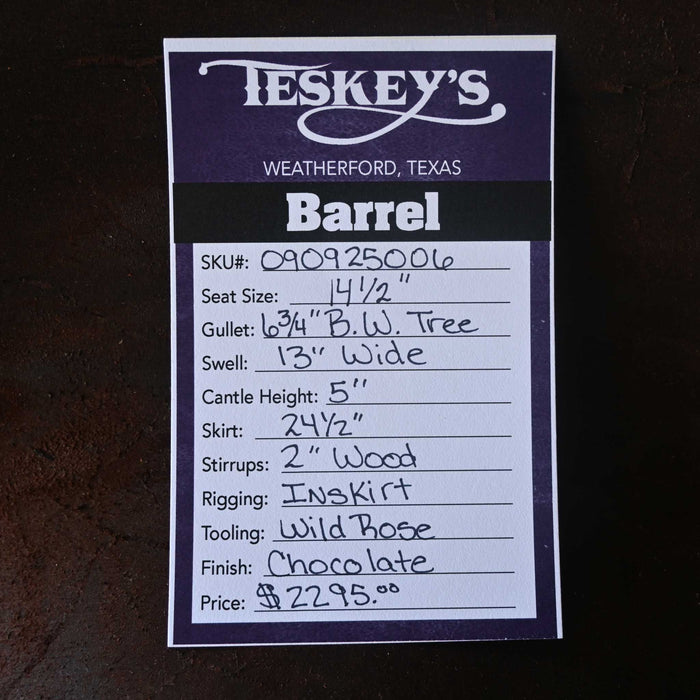 TESKEY'S
WEATHERFORD, TEXAS
Barrel
SKU#: 090925006
Seat Size: 14 1/2"
Gullet: 6 3/4" B.W. Tree
Swell: 13" Wide
Cantle Height: 5"
Skirt: 24 1/2"
Stirrups: 2" Wood
Rigging: Inskirt
Tooling: Wild Rose
Finish: Chocolate
Price: $2295.00